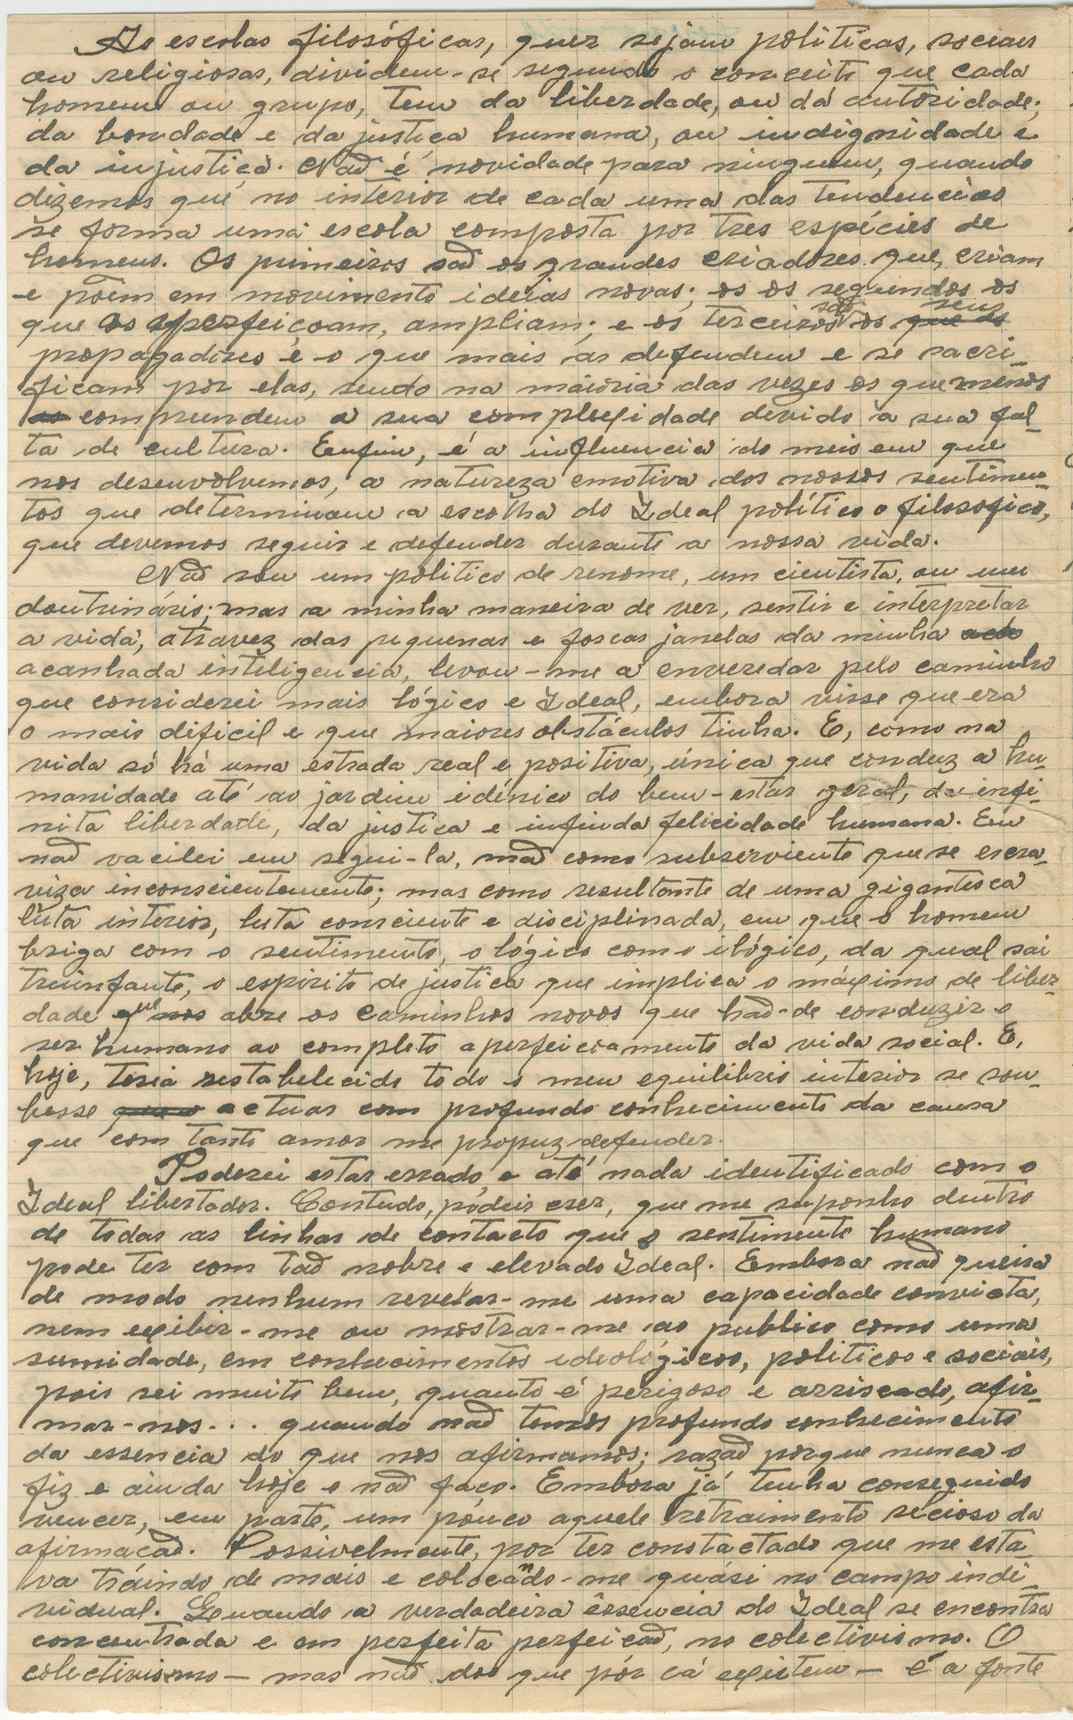 As escolas filosóficas, quer sejam políticas, sociais
ou religiosas, dividem-se segundo o conceito que cada
homem ou grupo, tem da liberdade, ou da autoridade;
da bondade e da justiça humana, ou indignidade e
da injustiça. Não é novidade para ninguem, quando
dizemos que no interior de cada uma das tendencias
se forma uma escola composta por tres espécies de
homens. Os primeiros são os grandes criadores que, criam
e pôem em movimento ideias novas; os os segundos os
que as aperfeiçoam, ampliam; e os terceiros são os seus
propagadores e o que mais as defendem e se sacri-
ficam por elas, sendo na maioria das vezes os que menos
compreendem a sua complexidade devido a sua fal-
ta de cultura. Enfim, é a influencia do meio em que
nos desenvolvemos, a natureza emotiva dos nossos sentimen-
tos que determinam a escolha do Ideal político o filosofico,
que devemos seguir e defender durante a nossa vida.
Não sou um politico de renome, um cientista, ou um
doutrinário; mas a minha maneira de ver, sentir e interpretar
a vida, atravez das pequenas e foscas janelas da minha
acanhada inteligencia, levou-me a enveredar pelo caminho
que considerei mais lógico e Ideal, embora visse que era
o mais dificil e que maiores obstáculos tinha. E, como na
vida só há uma estrada real e positiva, única que conduz a hu-
manidade até ao jardim idénico do bem-estar geral, da infi-
nita liberdade, da justiça e infinda felicidade humana. Eu
não vacilei em segui-la, não como subserviente que se escra-
viza inconscientemente; mas como resultante de uma gigantesca
luta interior, luta consciente e disciplinada, em que o homem
briga com o sentimento, o lógico com o ilógico, da qual sai
triunfante, o espirito de justiça que implica o máximo de liber-
dade que abre os caminhos novos que hão-de conduzir o
ser humano ao completo aperfeiçoamento da vida social. E,
hoje, teria restabelecido todo o meu equilibrio interior se sou-
besse actuar com profundo conhecimento da causa
que com tanto amor me propuz defender.
Poderei estar errado e até nada identificado com o
Ideal libertador. Contudo, podeis crer, que me suponho dentro
de todas as linhas de contacto que o sentimento humano
pode ter com tão nobre e elevado Ideal. Embora não queira
de modo nenhum revelar-me uma capacidade convicta,
nem exibir-me ou mostrar-me ao publico como uma
sumidade, em conhecimentos ideológicos, politicos e sociais,
pois sei muito bem, quanto é perigoso e arriscado, afir-
mar-nos... quando não temos profundo conhecimento
da essencia do que nos afirmamos; razão porque nunca o
fiz e ainda hoje o não faço. Embora já tenha conseguido
vencer, em parte, um pouco aquele retraimento recioso da
afirmação. Possivelmente, por ter constactado que me esta-
va traindo de mais e colocando-me quási no campo indi-
vidual. Quando a verdadeira essencia do Ideal se encontra
concentrada e em perfeita perfeição, no colectivismo. O
colectivismo - mas não dos que pór cá existem - é a fonte